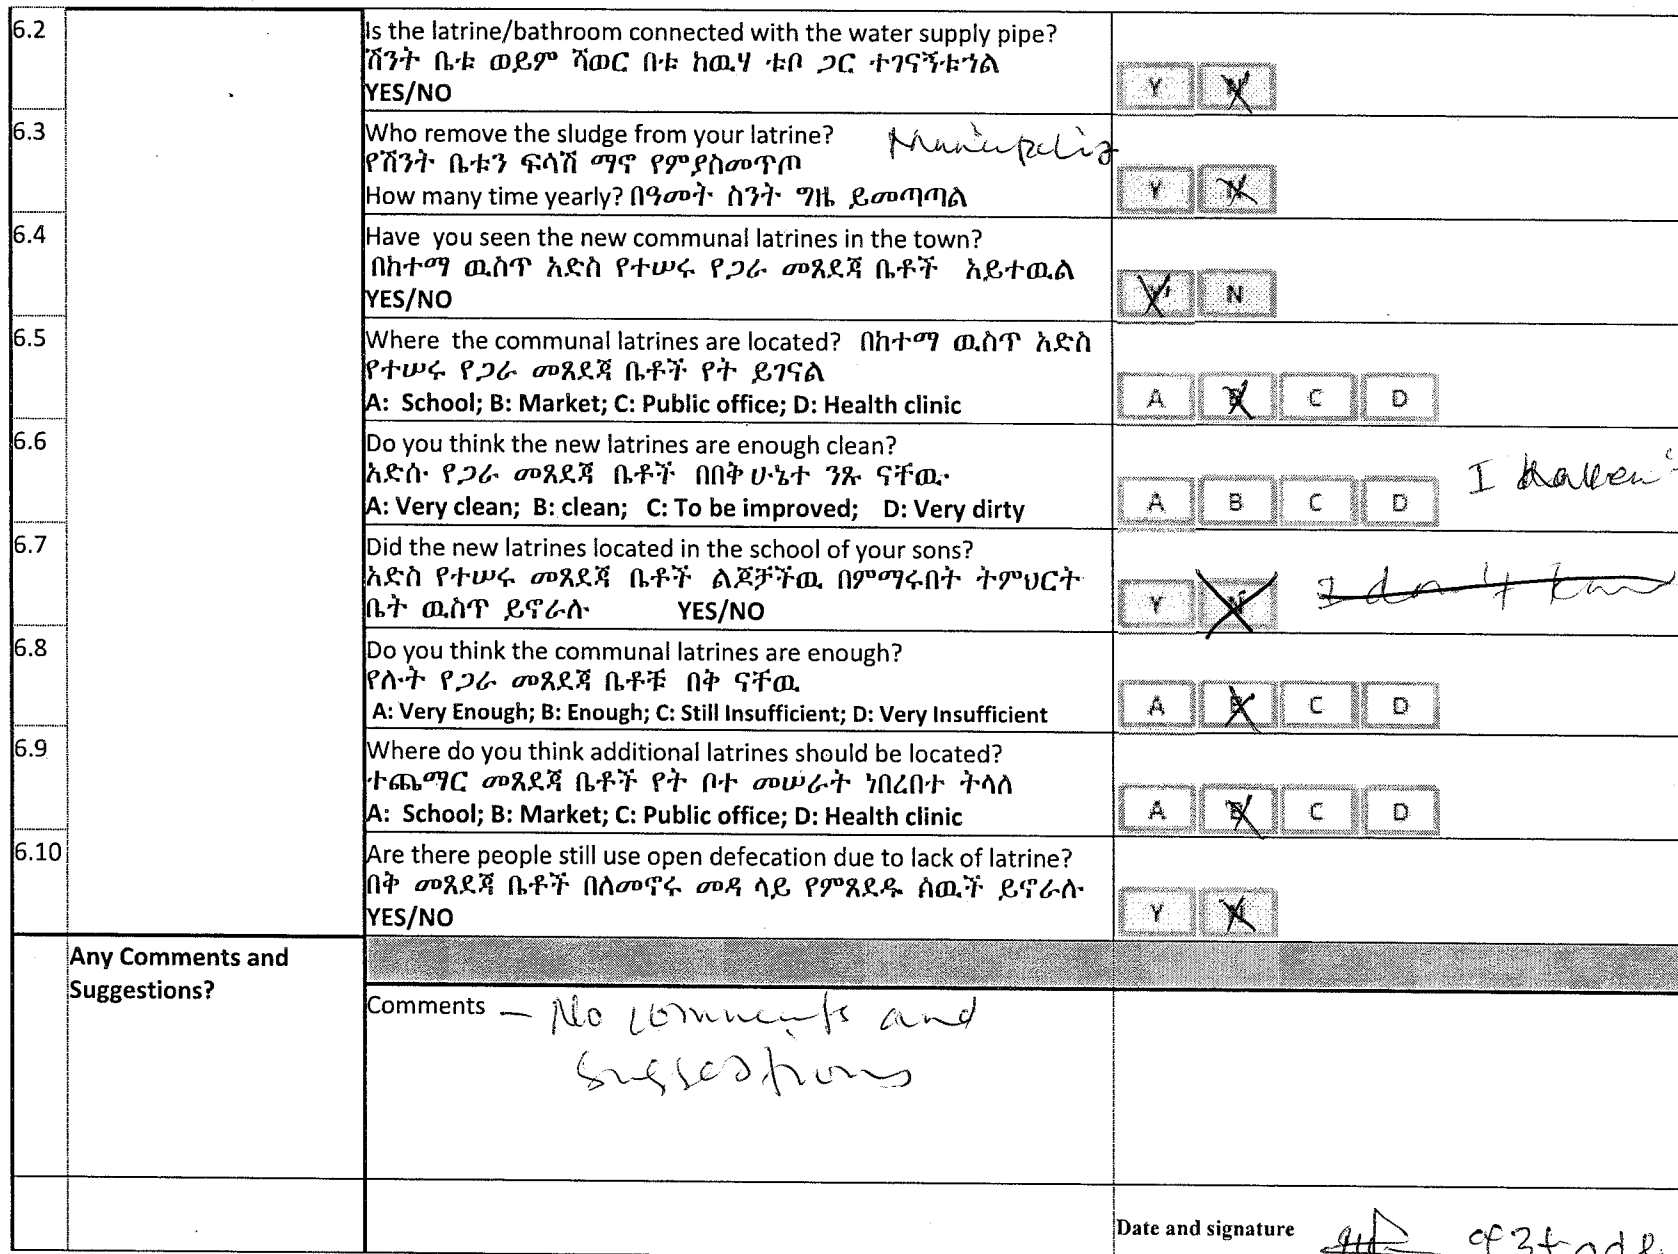 6.2
Is the latrine/bathroom connected with the water supply pipe?
ሽንት ቤቱ ወይም ሻወር በቱ ከዉሃ ቱቦ ጋር ተገናኝቱኀል
YES/NO
Y N
6.3
Who remove the sludge from your latrine?
የሽንት ቤቱን ፍሳሽ ማኖ የምያስመጥጦ
How many time yearly? በዓመት ስንት ግዜ ይመጣጣል
Y N
6.4
Have you seen the new communal latrines in the town?
በከተማ ዉስጥ አድስ የተሠሩ የጋራ መጸደጃ ቤቶች አይተዉል
YES/NO
Y N
6.5
Where the communal latrines are located? በከተማ ዉስጥ አድስ
የተሠሩ የጋራ መጸደጃ ቤቶች የት ይገናል
A: School; B: Market; C: Public office; D: Health clinic
A B C D
6.6
Do you think the new latrines are enough clean?
አድሱ የጋራ መጸደጃ ቤቶች በበቅ ሁኔተ ንጹ ናቸዉ
A: Very clean; B: clean; C: To be improved; D: Very dirty
A B C D I haven't
6.7
Did the new latrines located in the school of your sons?
አድስ የተሠሩ መጸደጃ ቤቶች ልጆቻችዉ በምማሩበት ትምህርት
ቤት ዉስጥ ይኖራሉ YES/NO
Y N I don't
6.8
Do you think the communal latrines are enough?
የሉት የጋራ መጸደጃ ቤቶቹ በቅ ናቸዉ
A: Very Enough; B: Enough; C: Still Insufficient; D: Very Insufficient
A B C D
6.9
Where do you think additional latrines should be located?
ተጨማር መጸደጃ ቤቶች የት ቦተ መሠራት ነበረበተ ትላለ
A: School; B: Market; C: Public office; D: Health clinic
A B C D
6.10
Are there people still use open defecation due to lack of latrine?
በቅ መጸደጃ ቤቶች በለመኖሩ መዳ ላይ የምጸደዱ ስዉች ይኖራሉ
YES/NO
Y N
Any Comments and
Suggestions?
Comments — No comments and
suggestions
Date and signature